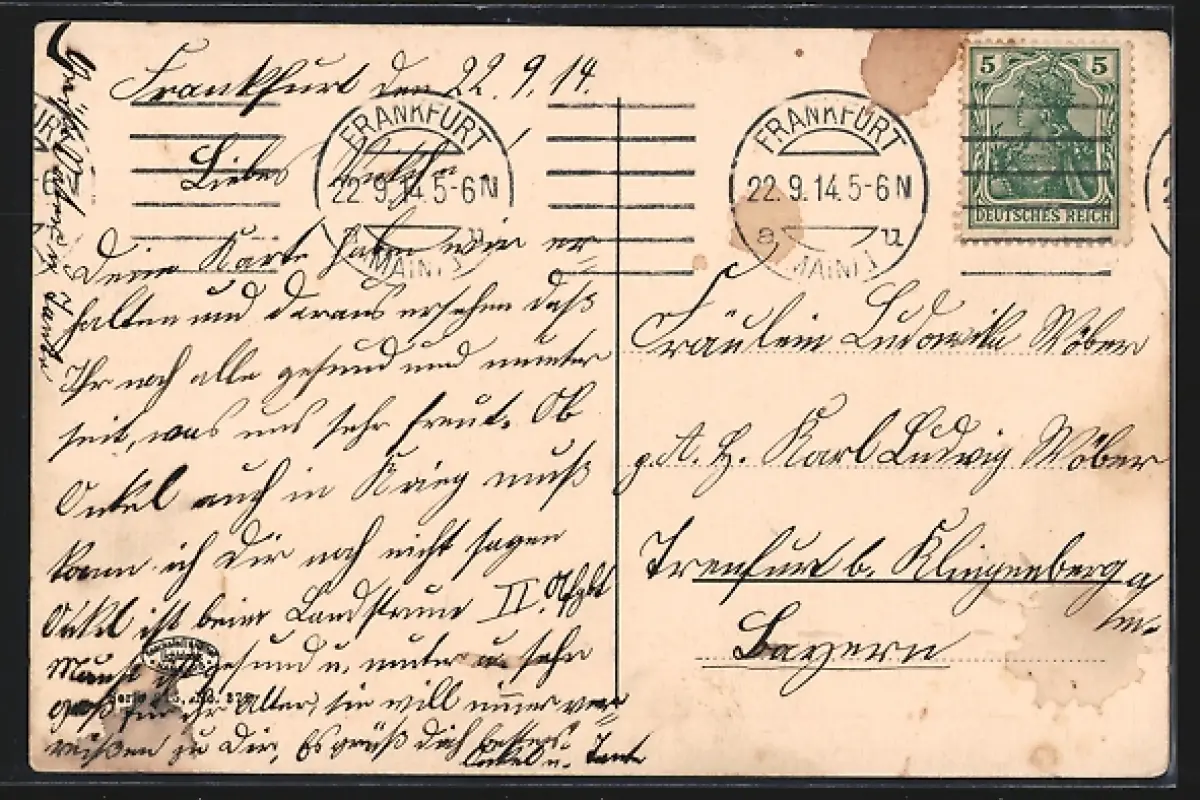 Frankfurt den 22.9.14.
Liebes
Deine Karte haben wir er-
halten und daraus ersehen daß
Ihr noch alle gesund und munter
seit, was uns sehr freut. Ob
Onkel auch in Krieg muß
kann ich Dir noch nicht sagen
Onkel ist beim Landsturm II.
gesund u. munter u. sehr
groß für ihr Alter, sie will immer ver-
reißen zu Dir. Es grüßt dich bestens
Onkel u. Tante
FRANKFURT
22.9.14.5-6N
(MAIN) 1
u
FRANKFURT
22.9.14.5-6N
a u
(MAIN) 1
5 5
DEUTSCHES REICH
Fräulein Ludowika Wöber
p. A. H. Karl Ludwig Wöber
Trenfurt b. Klingenberg a/
m.
Bayern